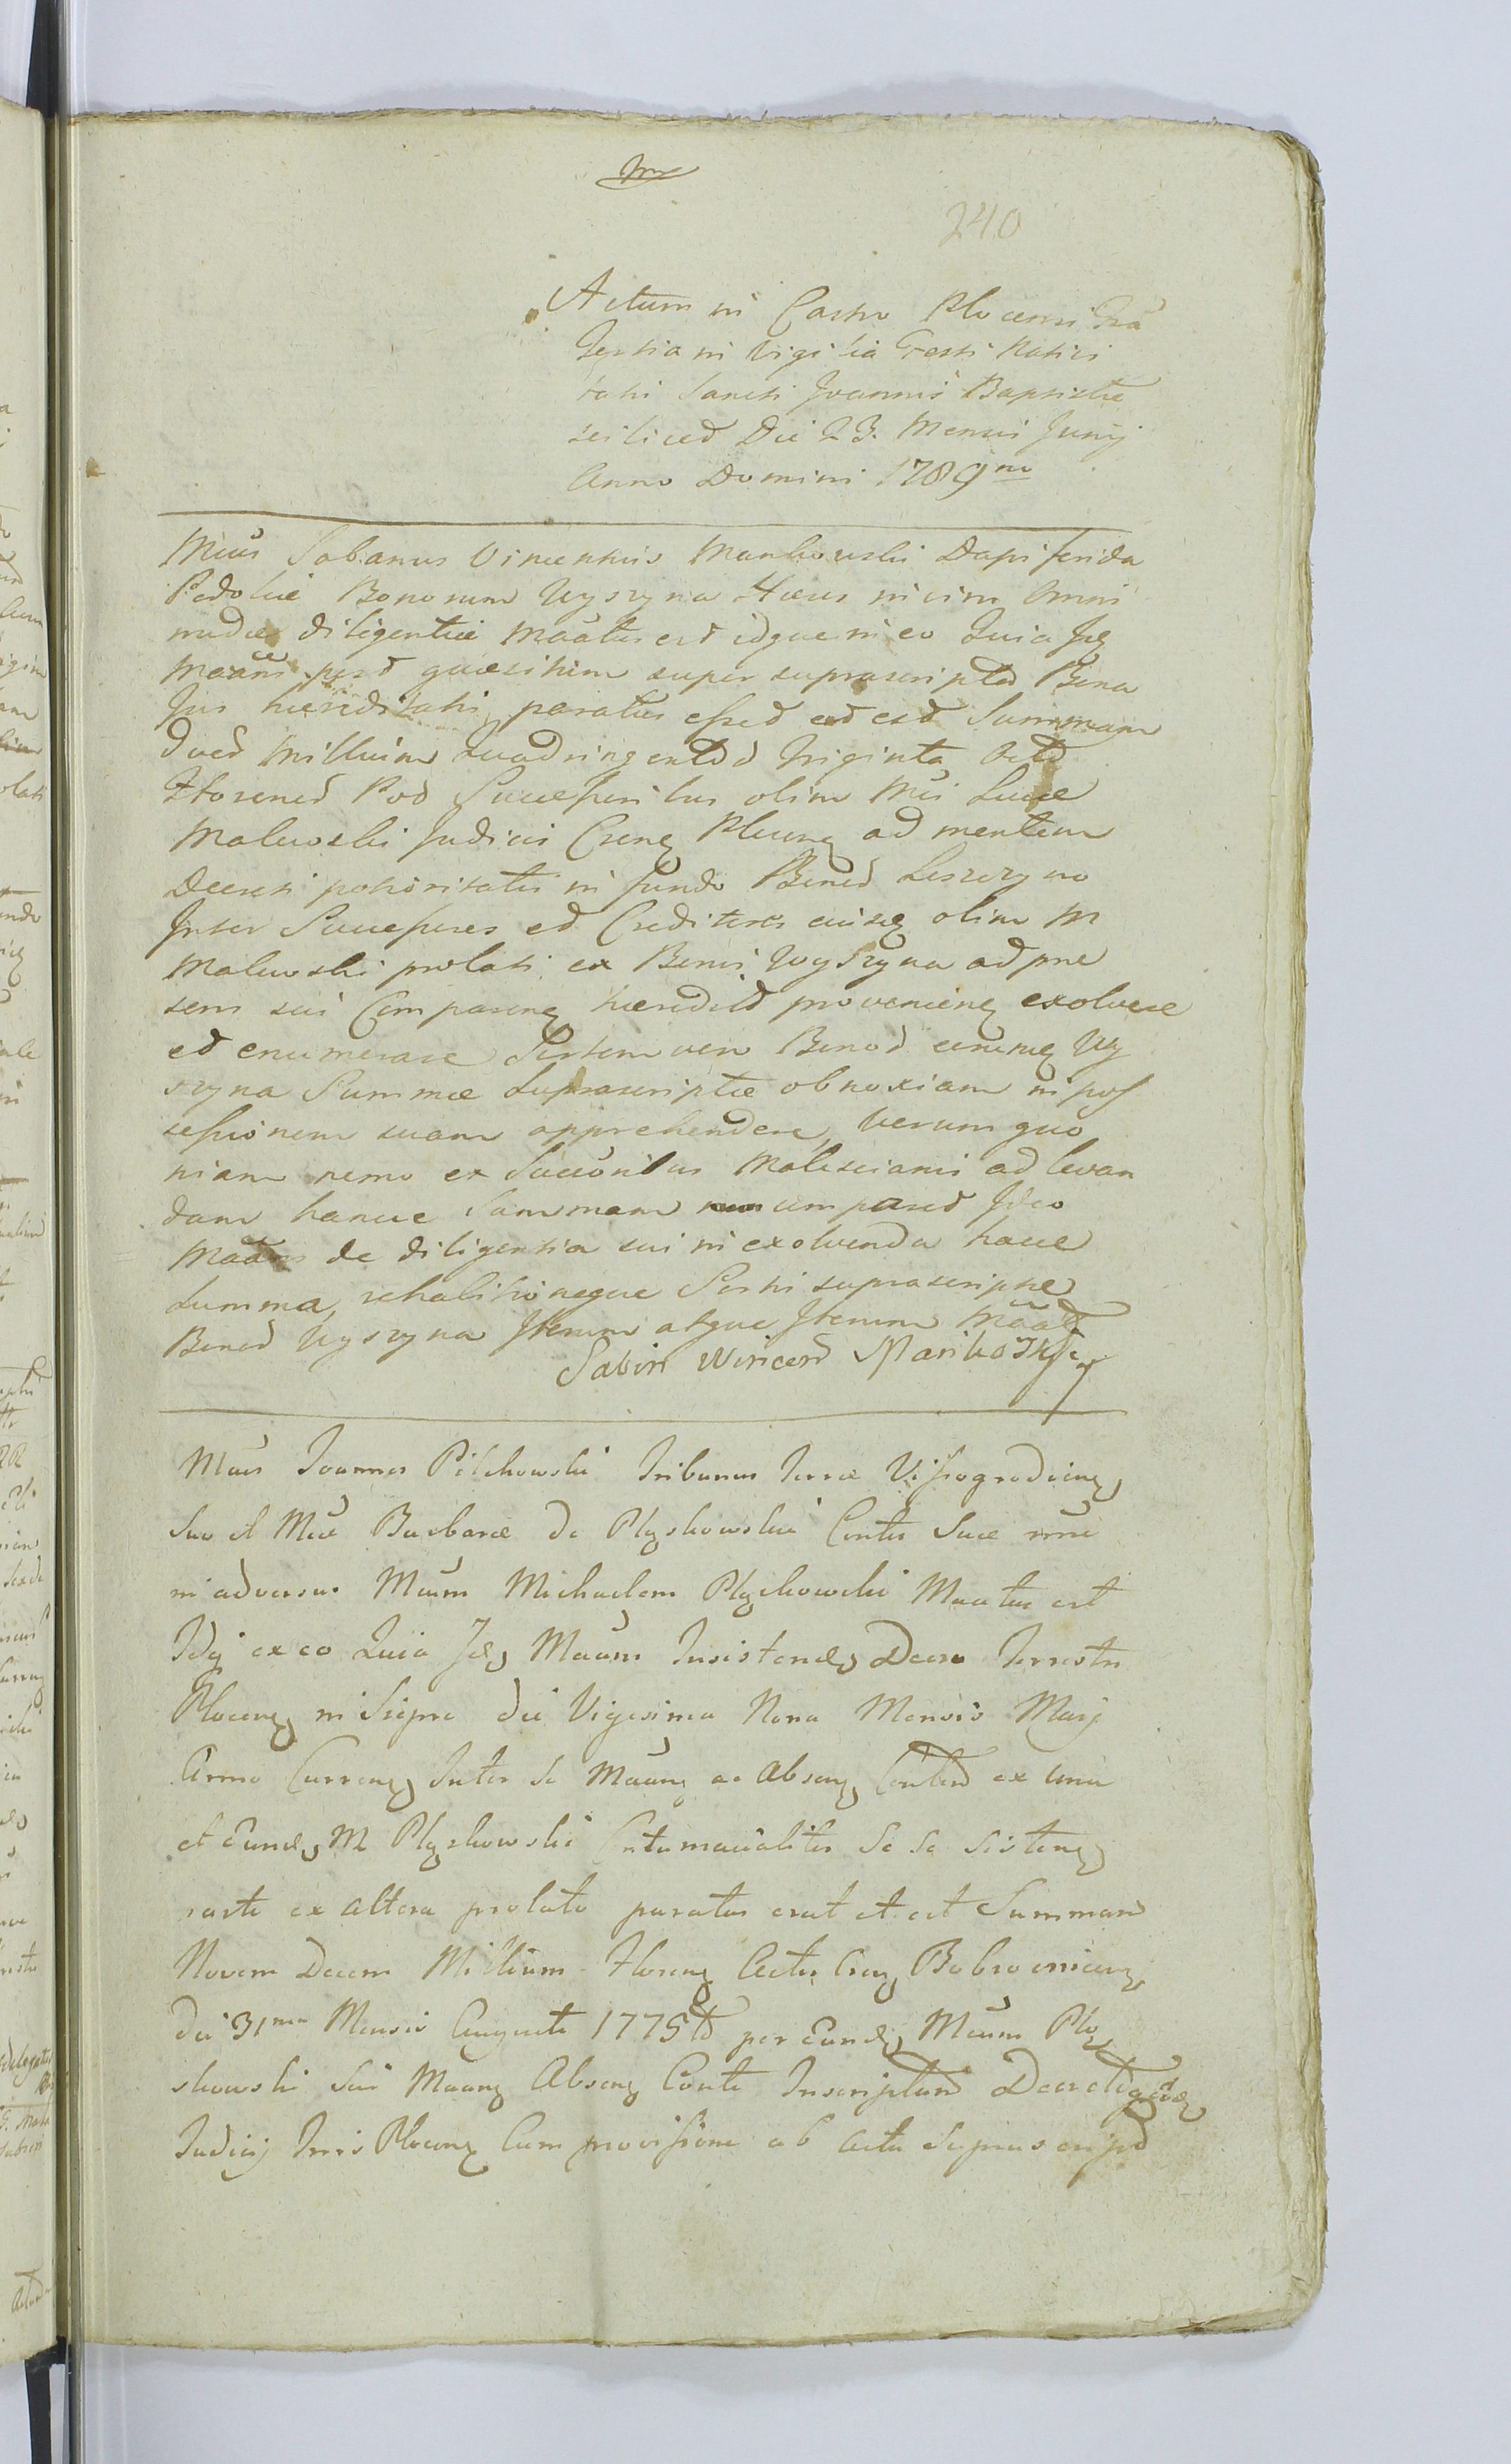 240
Actum in Castro Plocensi Fra
Tertia in Vigilia Festi Nativi
tatis Sancti Joannis Baptistæ
scilicet Die 23. Mensis Junij
Anno Domini 1789no
Mcus Sabanus Vincentius Mankowski Dapiferida
Podoliæ Bonorum Wyszyna Hæres nivim omni
modæ diligentiæ Maatus est idque in eo Quia
quæsitum super suprascripta Bona
Jus hæreditatis paratus esset ad est Summam
duod Millium Quadringented triginta Octo
Florened Pod Successoribus olim Mci Lucæ
Malewski Judicis Plocens ad mentem
Decreti potioritatis in fundo Bonod Leszczyno
Inter Successores ed Creditores olim M
Malewski prolati ex Bonis Wyszyna ad præ
sens sui Comparens hæredid proveniens exolvere
ed enumerare Sortem vero Bonod Wy
szyna Summæ Suprascriptæ obnoxiam in pos
sessionem suam apprehendere, Verum quo
niam nemo ex Succōribus Malescianis ad levan
dam hancce Summam comparet Ideo
de diligentia sui in exolvenda hacce
Summa, rehabitioneque Sortis suprascriptæ
Bonod Wyszyna Iterum atque Iterum Māat
Sabin Wincent Mankowski
Mcus Joannes Pilchowski Tribunus Terræ Vissogrodiens
Suo et Mcæ Barbaræ de Plyskowskie Contis Suæ nnē
in adversus Mcum Michaelem Plyskowski Maatus est
Idq ex eo Quia Insistend Decro Terrestri
Plocens in Sierpc die Vigesima Nona Mensis Maij
Anno Currens Inter Se Maans ac Absens Contem ex una
et Eund M Plyskowski Contumacialiter Se se sistens
parte ex altera prolato paratus erat et est Summam
Novem Decem Millium Florens Actis Bobrovnicens
die 31ma Mensis Augusti 1775to per Eund Mcum Ply
skowski Sui Maans Absens Conti Inscriptam
Judicij Trris Plocens Cum provisione ab Actu Suprascript